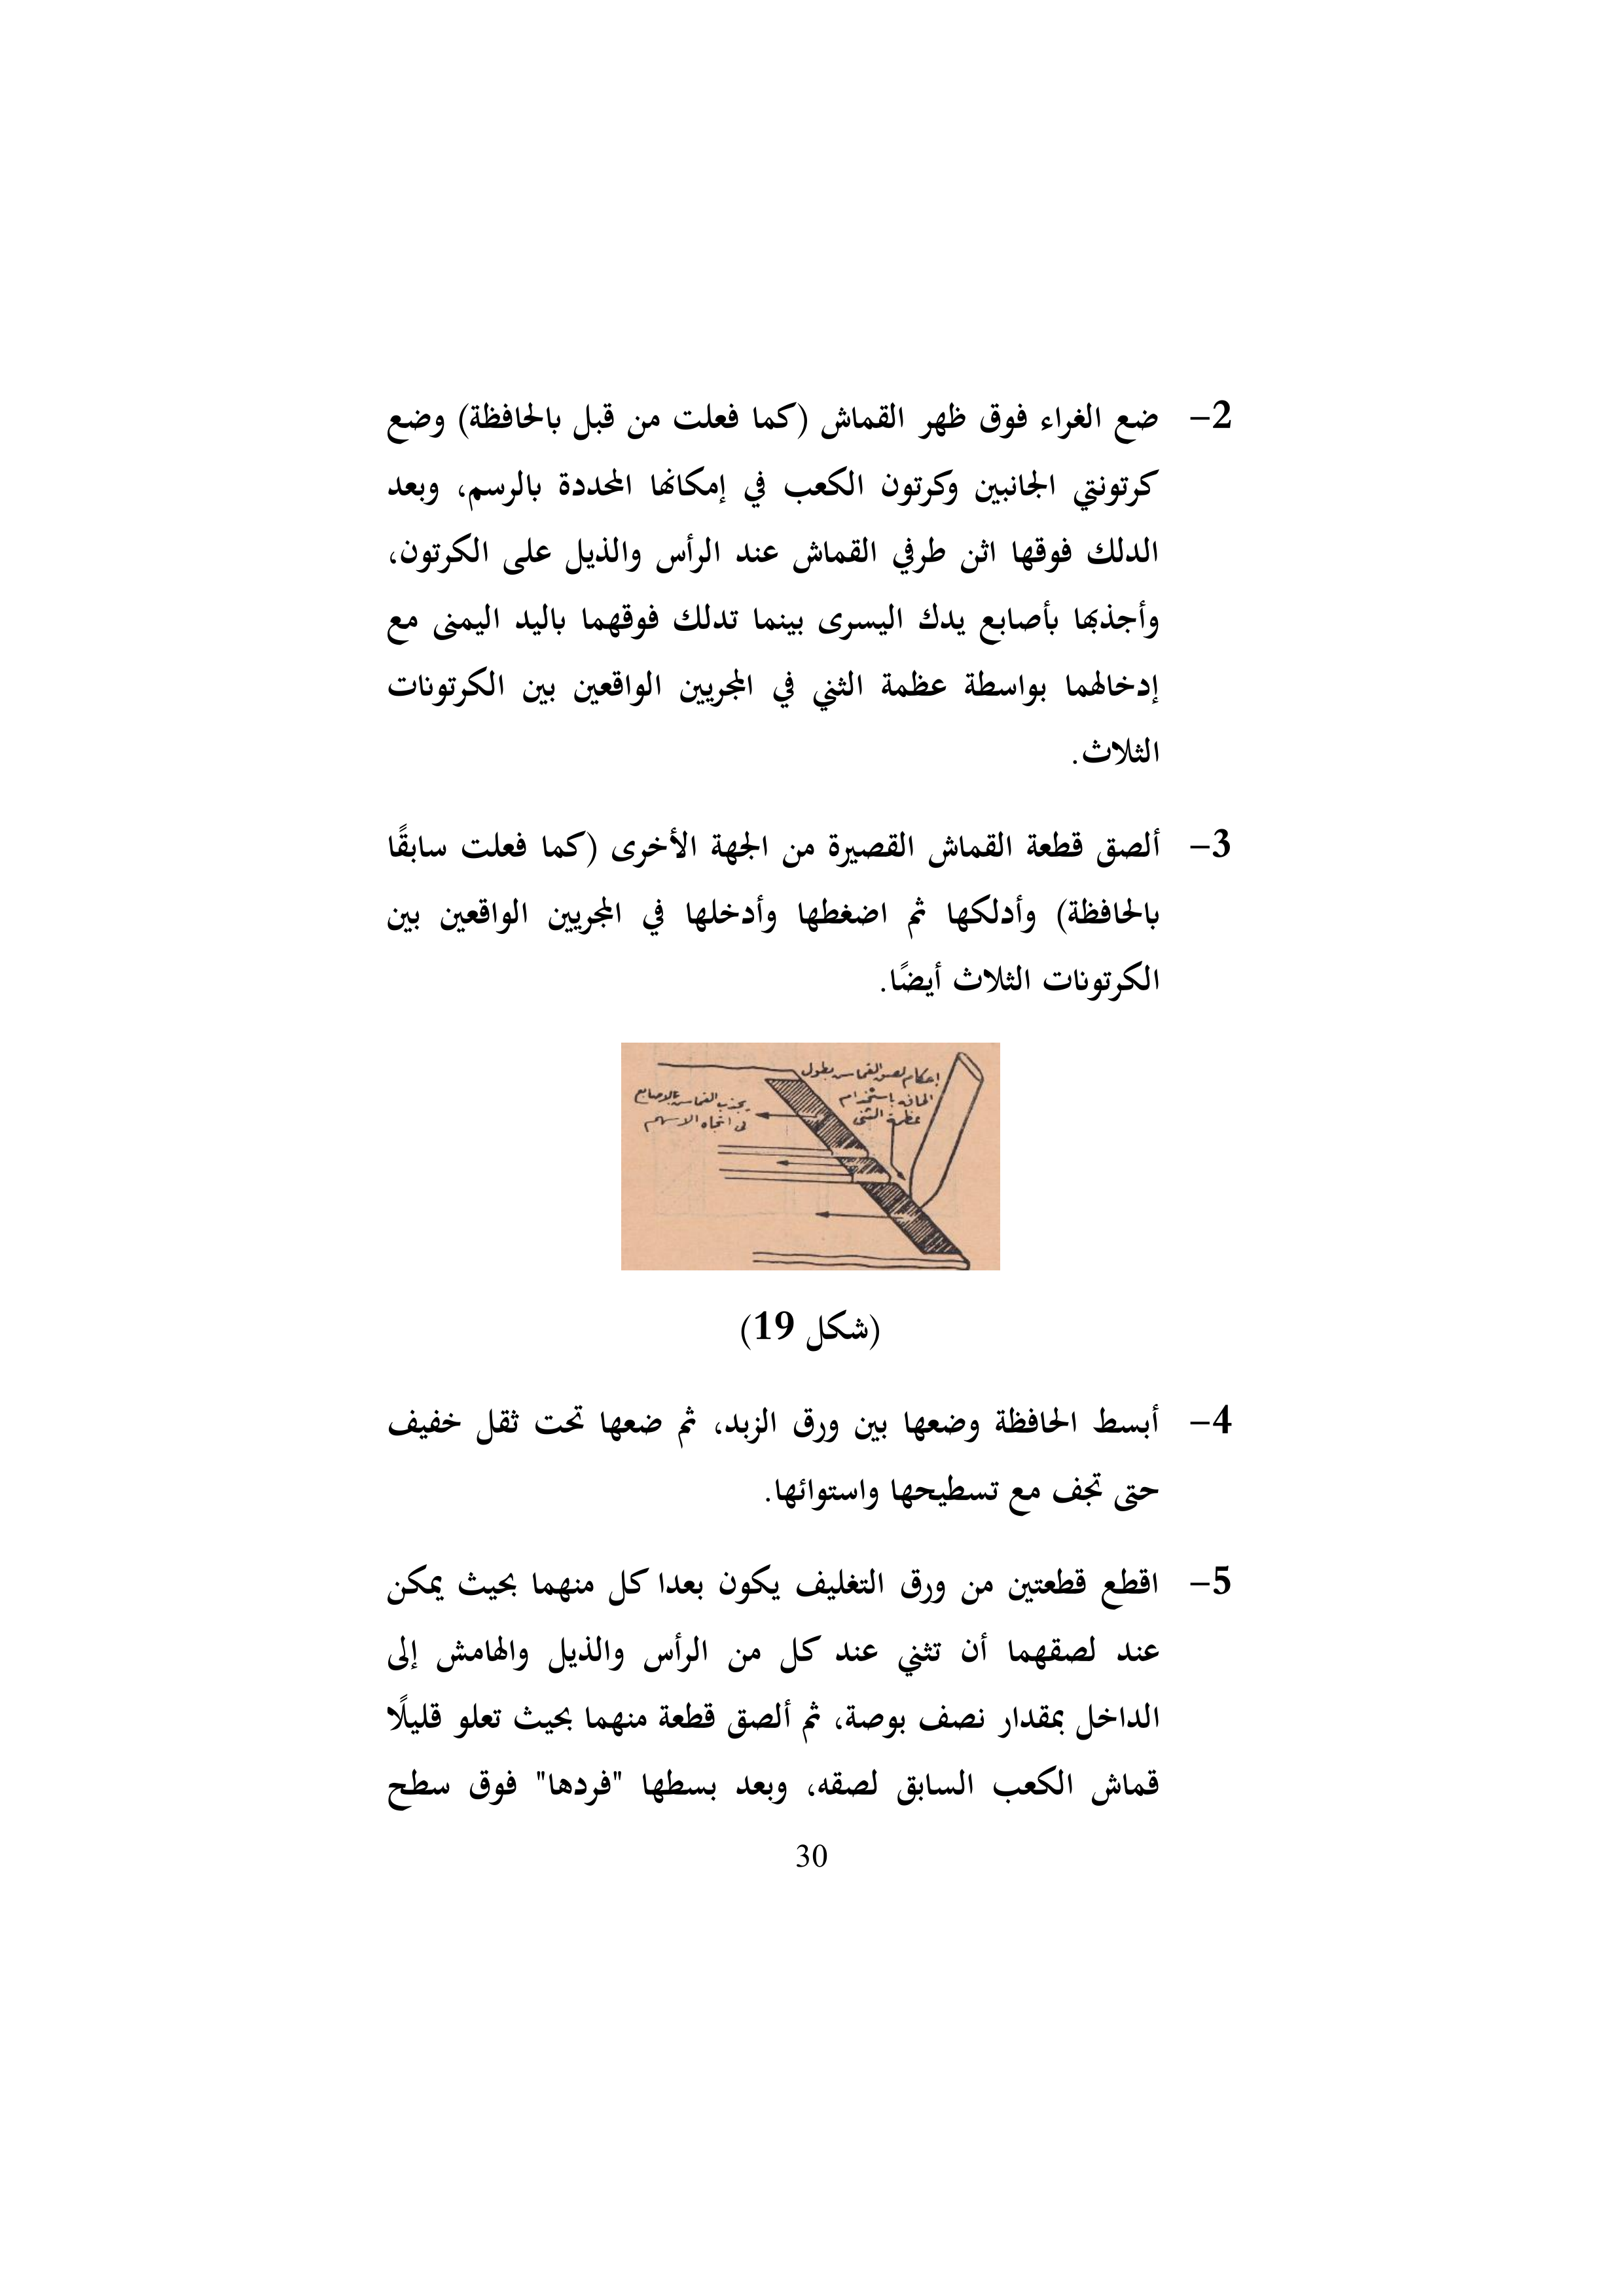 2- ضع الغراء فوق ظهر القماش (كما فعلت من قبل بالحافظة) وضع
كرتونتي الجانبين وكرتون الكعب في إمكانها المحددة بالرسم، وبعد
الدلك فوقها اثن طرفي القماش عند الرأس والذيل على الكرتون،
وأجذبها بأصابع يدك اليسرى بينما تدلك فوقهما باليد اليمنى مع
إدخالهما بواسطة عظمة الثني في المجريين الواقعين بين الكرتونات
الثلاث.
3- ألصق قطعة القماش القصيرة من الجهة الأخرى (كما فعلت سابقًا
بالحافظة) وأدلكها ثم اضغطها وأدخلها في المجريين الواقعين بين
الكرتونات الثلاث أيضًا.
إحكام لصق القماس بطول
الحافه باستخدام
عظمة الثنى
يجذب القماس بالاصابع
فى اتجاه الاسهم
(شكل 19)
4- أبسط الحافظة وضعها بين ورق الزبد، ثم ضعها تحت ثقل خفيف
حتى تجف مع تسطيحها واستوائها.
5- اقطع قطعتين من ورق التغليف يكون بعدا كل منهما بحيث يمكن
عند لصقهما أن تثني عند كل من الرأس والذيل والهامش إلى
الداخل بمقدار نصف بوصة، ثم ألصق قطعة منهما بحيث تعلو قليلًا
قماش الكعب السابق لصقه، وبعد بسطها "فردها" فوق سطح
30